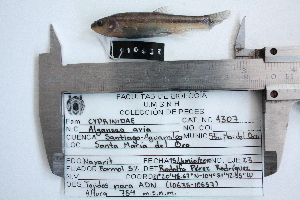 910638
FACULTAD DE BIOLOGIA
U.M.S.N.H.
COLECCIÓN DE PECES
Fam. CYPRINIDAE CAT. No. 4307
N.C. Algansea avia NO. COL.
CUENCA Santiago-Aguamilpa MUNICIPIO Sta. Ma. del Oro
LOC Santa María del Oro
EDO Nayarit FECHA 15/junio/2010 No. EJE. 23
FIJADOR Formol 5% DET. Rodolfo Pérez Rodríguez
COORD
OBS Tejidos para ADN (10635-10657)
Altura 754 m.s.n.m.